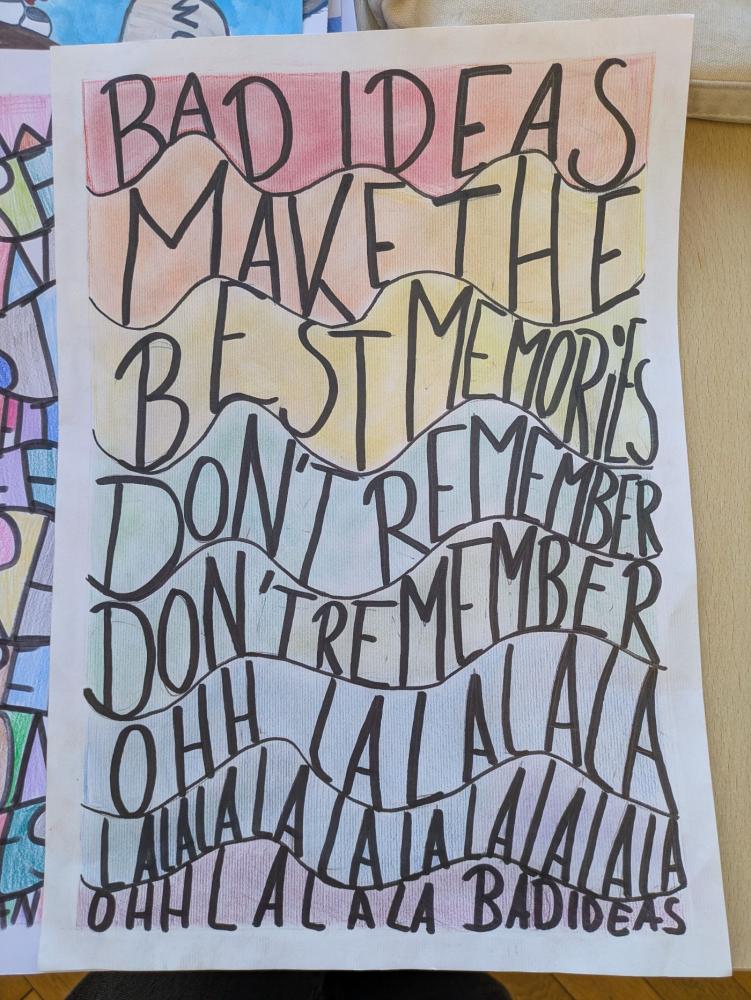 BAD IDEAS
MAKE THE
BEST MEMORIES
DON'T REMEMBER
DON'T REMEMBER
OHH LALALALA
LALALALA LALALA LALALALALA
OHH LALALALA BAD IDEAS